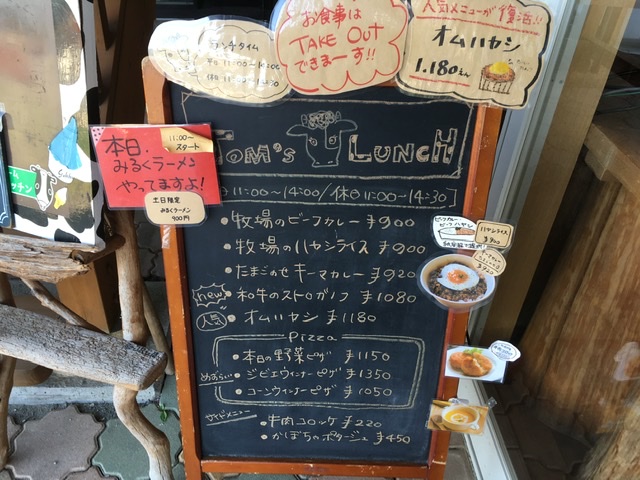 ランチタイム
平日 11:00〜14:00
休日 11:00〜
お食事は
TAKE OUT
できまーす!!
人気メニューが復活!!
オムハヤシ
1.180えん
11:00〜
スタート
本日、
みるくラーメン
やってますよ!
土日限定
みるくラーメン
900円
TOM's LUNCH
11:00〜14:00/休日11:00〜14:30]
・牧場のビーフカレー ¥900
・牧場のハヤシライス ¥900
・たまごのせキーマカレー ¥920
new 和牛のストロガノフ ¥1080
人気 ・オムハヤシ ¥1180
Pizza
・本日の野菜ピザ ¥1150
めずらしい ・ジビエウインナーピザ ¥1350
・コーンウインナーピザ ¥1050
サイドメニュー
・牛肉コロッケ ¥220
・かぼちゃのポタージュ ¥450
ビーフカレー
ビーフハヤシ
ハヤシライス
¥900